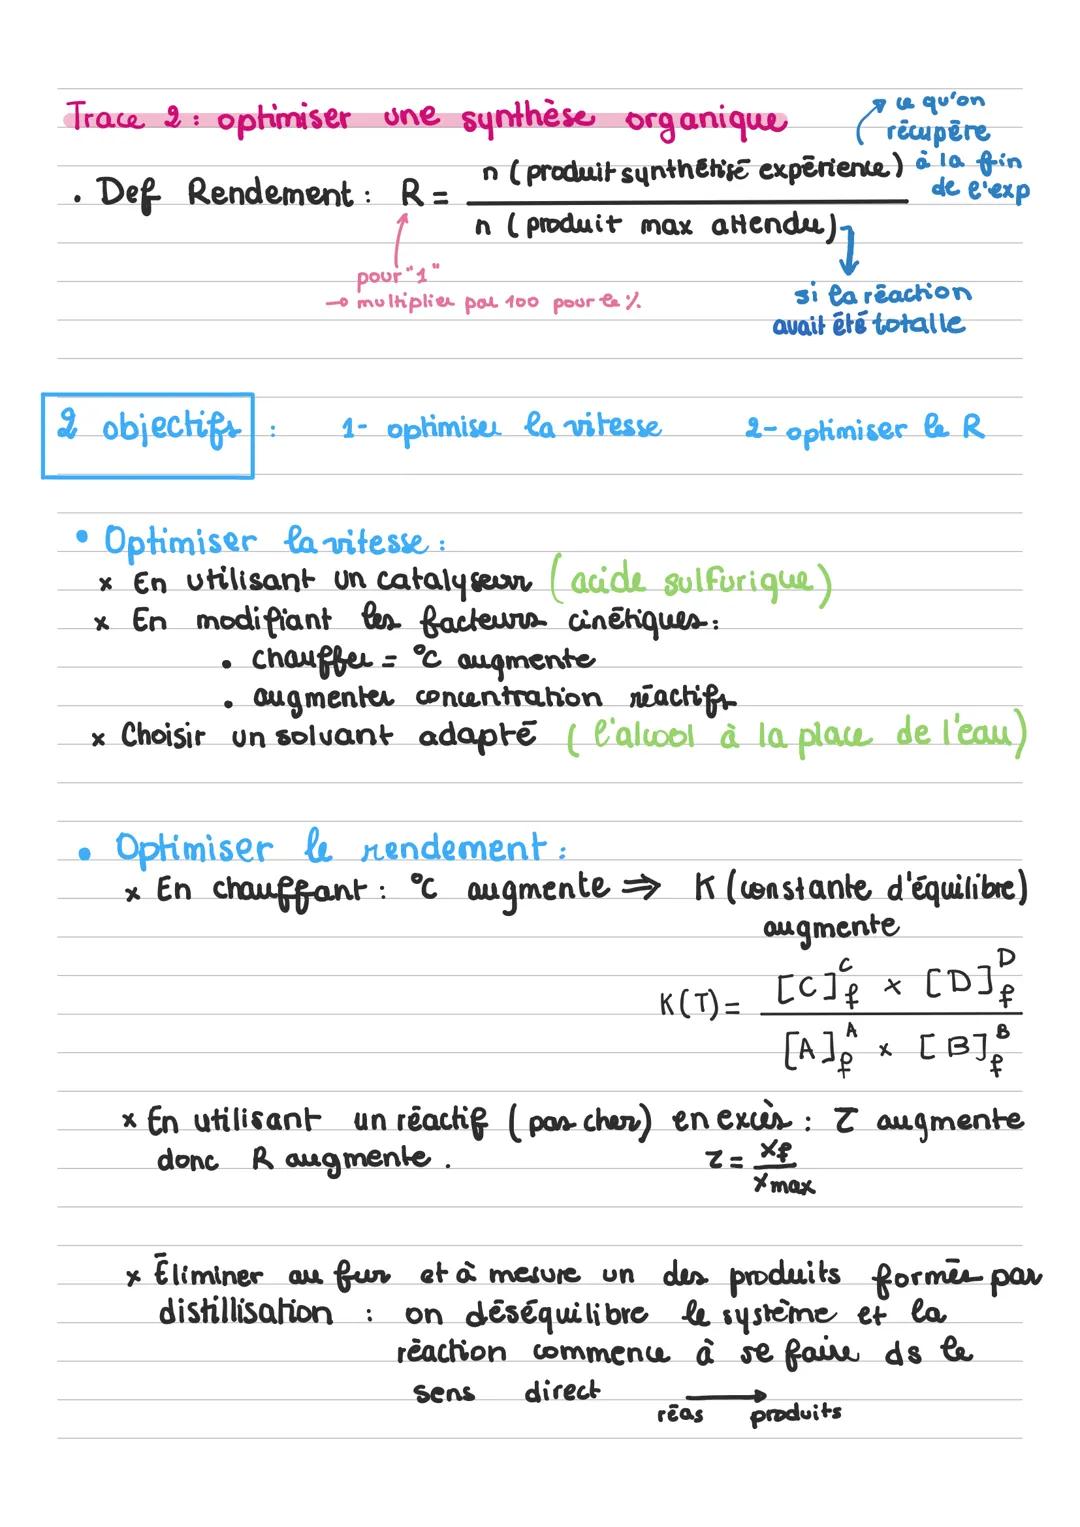 Trace 2 : optimiser une synthèse organique
ce qu'on
récupère
à la fin
de l'exp
• Def Rendement : R = n (produit synthétisé expérience) / n (produit max attendu)
pour "1"
→ multiplier par 100 pour le %
si la réaction
avait été totalle
2 objectifs : 1- optimiser la vitesse 2- optimiser le R
• Optimiser la vitesse :
x En utilisant un catalyseur (acide sulfurique)
x En modifiant les facteurs cinétiques :
• chauffer = °C augmente
• augmenter concentration réactifs
x Choisir un solvant adapté (l'alcool à la place de l'eau)
• Optimiser le rendement :
x En chauffant : °C augmente ⇒ K (constante d'équilibre)
augmente
K(T) = [C]f^C x [D]f^D / [A]f^A x [B]f^B
x En utilisant un réactif (pas cher) en excès : τ augmente
donc R augmente. τ = xf / xmax
x Éliminer au fur et à mesure un des produits formés par
distillisation : on déséquilibre le système et la
réaction commence à se faire ds le
sens direct →
réas produits